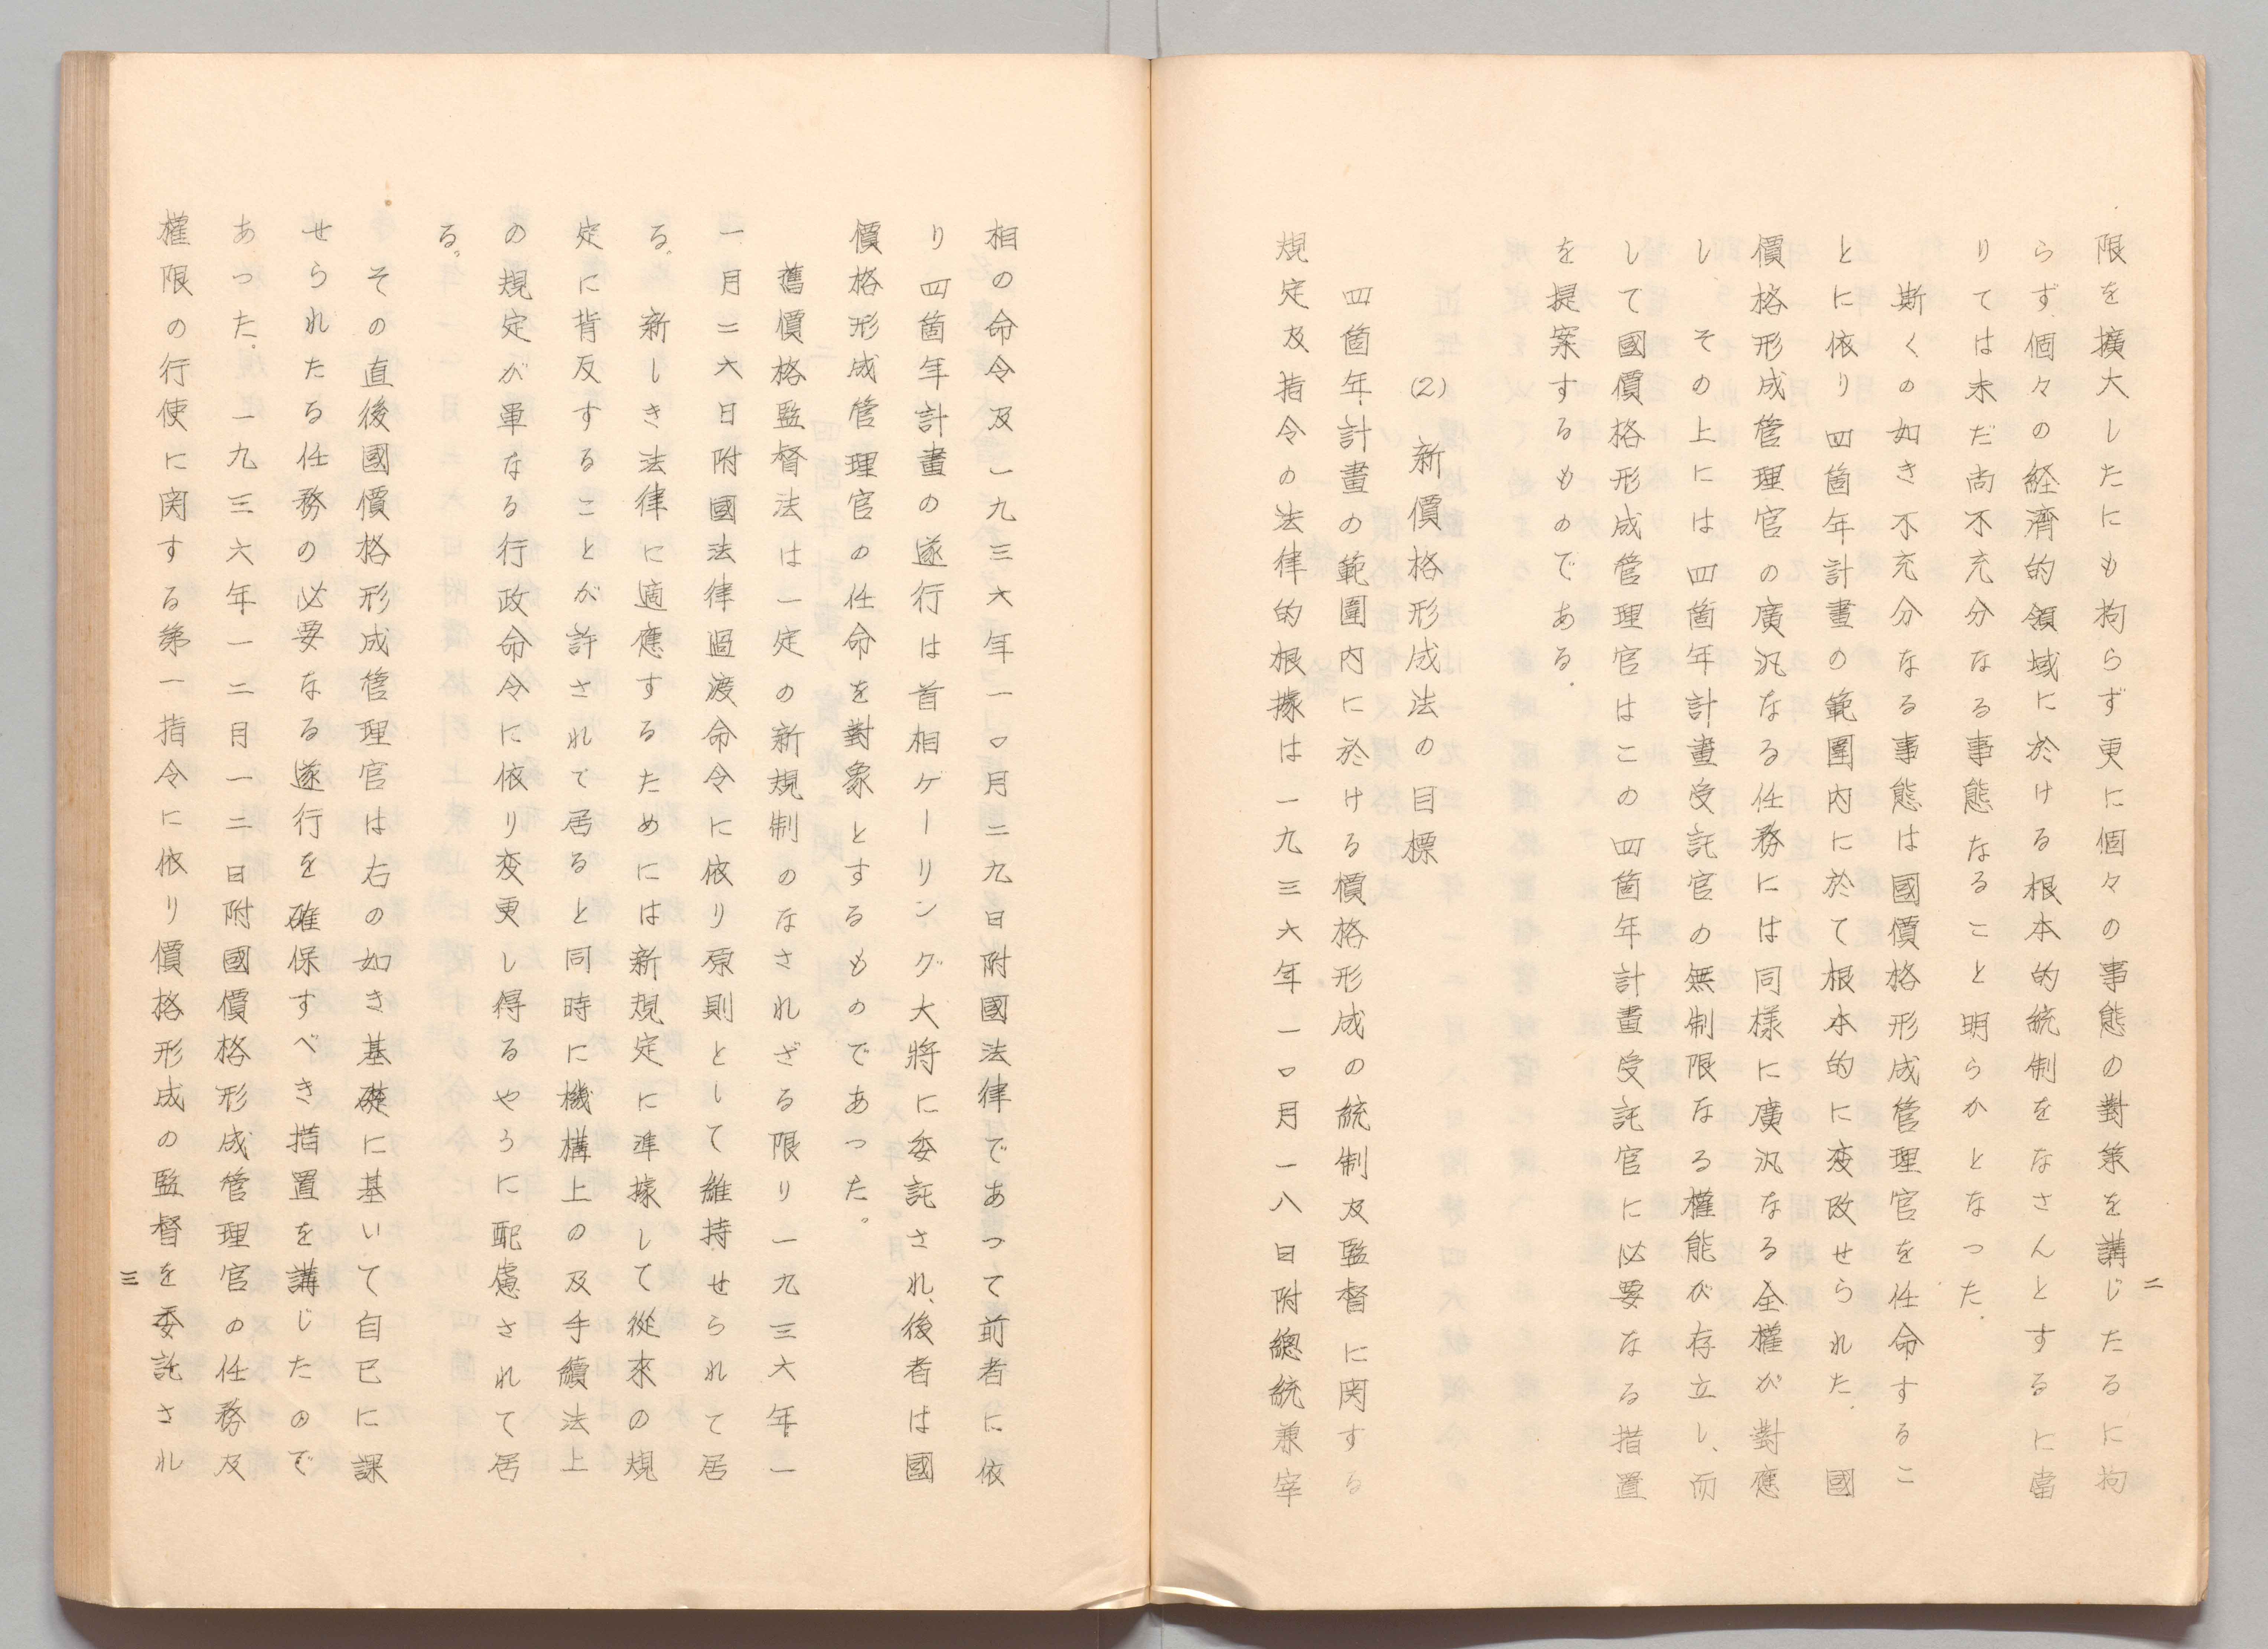 二
限を擴大したにも拘らず更に個々の事態の對策を講じたるに拘
らず個々の経濟的領域に於ける根本的統制をなさんとするに當
りては未だ尚不充分なる事態なること明らかとなった.
斯くの如き不充分なる事態は國價格形成管理官を任命するこ
とに依り四箇年計畫の範圍内に於て根本的に変改せられた.國
價格形成管理官の廣汎なる任務には同様に廣汎なる全權が對應
し、その上には四箇年計畫受託官の無制限なる權能が存立し、而
して國價格形成管理官はこの四箇年計畫受託官に必要なる措置
を提案するものである.
(2) 新價格形成法の目標
四箇年計畫の範圍内に於ける價格形成の統制及監督に関する
規定及指令の法律的根據は一九三六年一〇月一八日附總統兼宰
相の命令及一九三六年一〇月二九日附國法律であって前者に依
り四箇年計畫の遂行は首相ゲーリング大將に委託され、後者は國
價格形成管理官の任命を對象とするものであった。
舊價格監督法は一定の新規制のなされざる限り一九三六年一
一月二六日附國法律過渡命令に依り原則として維持せられて居
る。新しき法律に適應するためには新規定に準據して從來の規
定に背反することが許されて居ると同時に機構上の及手續法上
の規定が單なる行政命令に依り変更し得るやうに配慮されて居
る。
その直後國價格形成管理官は右の如き基礎に基いて自己に課
せられたる任務の必要なる遂行を確保すべき措置を講じたので
あった.一九三六年一二月一二日附國價格形成管理官の任務及
權限の行使に関する第一指令に依り價格形成の監督を委託され
三